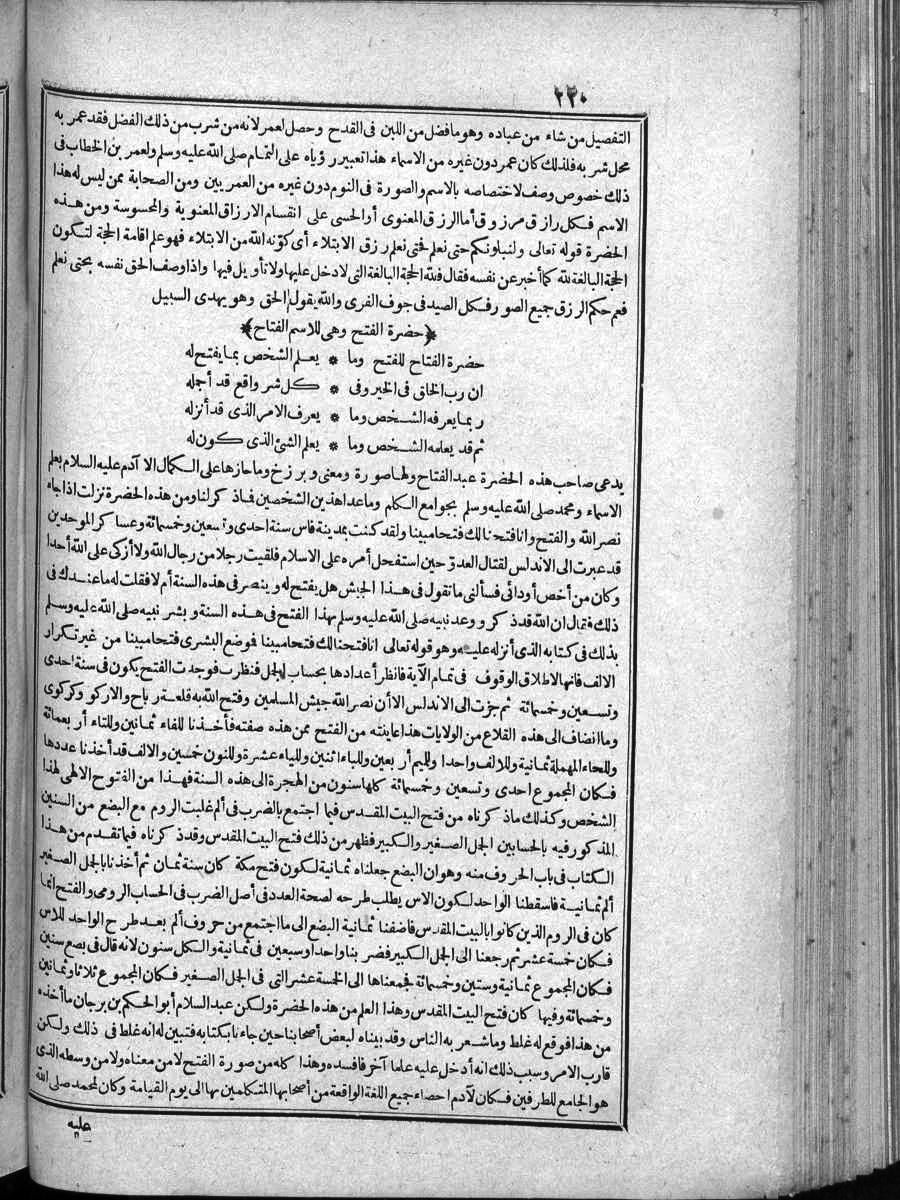 ٢٢٠
التفصيل من شاء من عباده وهو ما فضل من اللبن فى القدح وحصل لعمر لانه من شرب من ذلك الفضل فقد عمر به
محل شربه فلذلك كان عمر دون غيره من الاسماء هذا تعبير رؤياه على التمام صلى الله عليه وسلم ولعمر بن الخطاب فى
ذلك خصوص وصف لاختصاصه بالاسم والصورة فى النوم دون غيره من العمريين ومن الصحابة ممن ليس له هذا
الاسم فكل رازق مرزوق أما الرزق المعنوى أو الحسى على انقسام الارزاق المعنوية والمحسوسة ومن هذه
الحضرة قوله تعالى ولنبلونكم حتى نعلم فحتى نعلم رزق الابتلاء أى كونه الله من الابتلاء فهو علم اقامة الحجة لتكون
الحجة البالغة لله كما أخبر عن نفسه فقال فلله الحجة البالغة التى لا دخل عليها ولا تأويل فيها واذا وصف الحق نفسه بحتى نعلم
فعم حكم الرزق جميع الصور فكل الصيد فى جوف الفرى والله يقول الحق وهو يهدى السبيل
﴿حضرة الفتح وهى للاسم الفتاح﴾
حضرة الفتاح للفتح وما * يعلم الشخص بما يفتح له
ان رب الخلق فى الخير وفى * كل شر واقع قد أجله
ربما يعرفه الشخص وما * يعرف الامر الذى قد أنزله
ثم قد يعلمه الشخص وما * يعلم الشئ الذى كون له
يدعى صاحب هذه الحضرة عبد الفتاح ولها صورة ومعنى وبرزخ وما حازها على الكمال الا آدم عليه السلام بعلم
الاسماء ومحمد صلى الله عليه وسلم بجوامع الكلم وما عدا هذين الشخصين فما ذكر لنا ومن هذه الحضرة نزلت اذا جاء
نصر الله والفتح وانا فتحنا لك فتحا مبينا ولقد كنت بمدينة فاس سنة احدى وتسعين وخمسمائة وعساكر الموحدين
قد عبرت الى الاندلس لقتال العدو حين استفحل أمره على الاسلام فلقيت رجلا من رجال الله ولا أزكى على الله أحدا
وكان من أخص أودائى فسألنى ما تقول فى هذا الجيش هل يفتح له وينصر فى هذه السنة أم لا فقلت له ما عندك فى
ذلك فقال ان الله قد ذكر ووعد نبيه صلى الله عليه وسلم بهذا الفتح فى هذه السنة وبشر نبيه صلى الله عليه وسلم
بذلك فى كتابه الذى أنزله عليه وهو قوله تعالى انا فتحنا لك فتحا مبينا فوضع البشرى فتحا مبينا من غير تكرار
الالف فانها لاطلاق الوقوف فى تمام الآية فانظر أعدادها بحساب الجمل فنظرت فوجدت الفتح يكون فى سنة احدى
وتسعين وخمسمائة ثم جزت الى الاندلس الا أن نصر الله جيش المسلمين وفتح الله به قلعة رباح والاركو وكركوى
وما انضاف الى هذه القلاع من الولايات هذا عاينته من الفتح ممن هذه صفته فأخذنا للفاء ثمانين وللتاء أربعمائة
وللحاء المهملة ثمانية وللالف واحدا وللميم أربعين وللباء اثنين وللياء عشرة وللنون خمسين والالف قد أخذنا عددها
فكان المجموع احدى وتسعين وخمسمائة كلها سنون من الهجرة الى هذه السنة فهذا من الفتوح الالهى لهذا
الشخص وكذلك ما ذكرناه من فتح البيت المقدس فيما اجتمع بالضرب فى ألم غلبت الروم مع البضع من السنين
المذكور فيه بالحسابين الجمل الصغير والكبير فظهر من ذلك فتح البيت المقدس وقد ذكرناه فيما تقدم من هذا
الكتاب فى باب الحروف منه وهو ان البضع جعلناه ثمانية لكون فتح مكة كان سنة ثمان ثم أخذنا بالجمل الصغير
ألم ثمانية فاسقطنا الواحد لكون الاس يطلب طرحه لصحة العدد فى أصل الضرب فى الحساب الرومى والفتح انما
كان فى الروم الذين كانوا بالبيت المقدس فاضفنا ثمانية البضع الى ما اجتمع من حروف ألم بعد طرح الواحد للاس
فكان خمسة عشر ثم رجعنا الى الجمل الكبير فضربنا واحدا وسبعين فى ثمانية والكل سنون لانه قال فى بضع سنين
فكان المجموع ثمانية وستين وخمسمائة فجمعناها الى الخمسة عشر التى فى الجمل الصغير فكان المجموع ثلاثا وثمانين
وخمسمائة وفيها كان فتح البيت المقدس وهذا العلم من هذه الحضرة ولكن عبد السلام أبو الحكم بن برجان ما أخذه
من هذا فوقع له غلط وما شعر به الناس وقد بيناه لبعض أصحابنا حين جاءنا بكتابه فتبين له انه غلط فى ذلك ولكن
قارب الامر وسبب ذلك انه أدخل عليه علما آخر فافسده وهذا كله من صورة الفتح لا من معناه ولا من وسطه الذى
هو الجامع للطرفين فكان لآدم احصاء جميع اللغة الواقعة من أصحابها المتكلمين بها الى يوم القيامة وكان لمحمد صلى الله
عليه